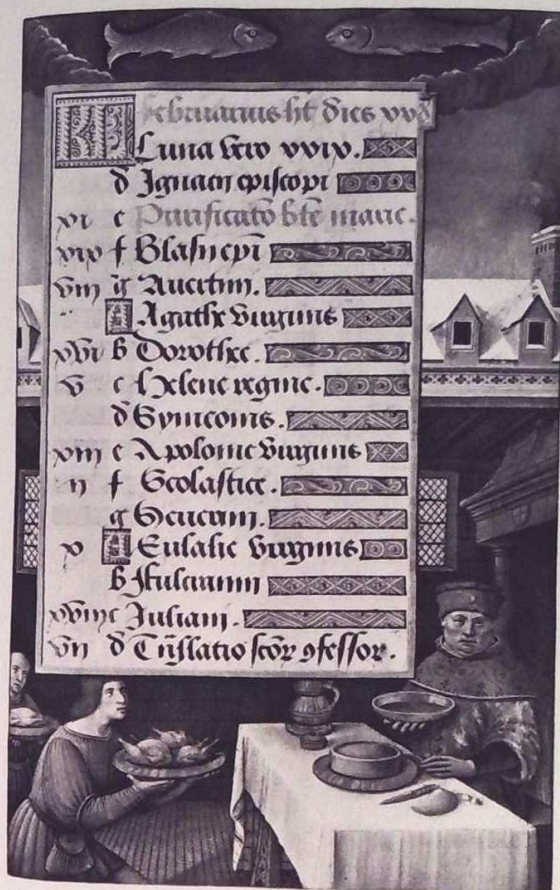 KL Februarius ht dies xxv
Luna vero xxix.
d Ignacii episcopi
xi e Purificatio bte marie.
xix f Blasii epi
viii g
A Agathe virginis
xvi b Dorothee.
v c helene regine.
d Symeonis.
xiii e Apolonie virginis
ii f Scolastice.
g Seuerini.
x A Eulalie virginis
b
xviii c Iuliani.
vii d Tnslatio scor 9fessor.